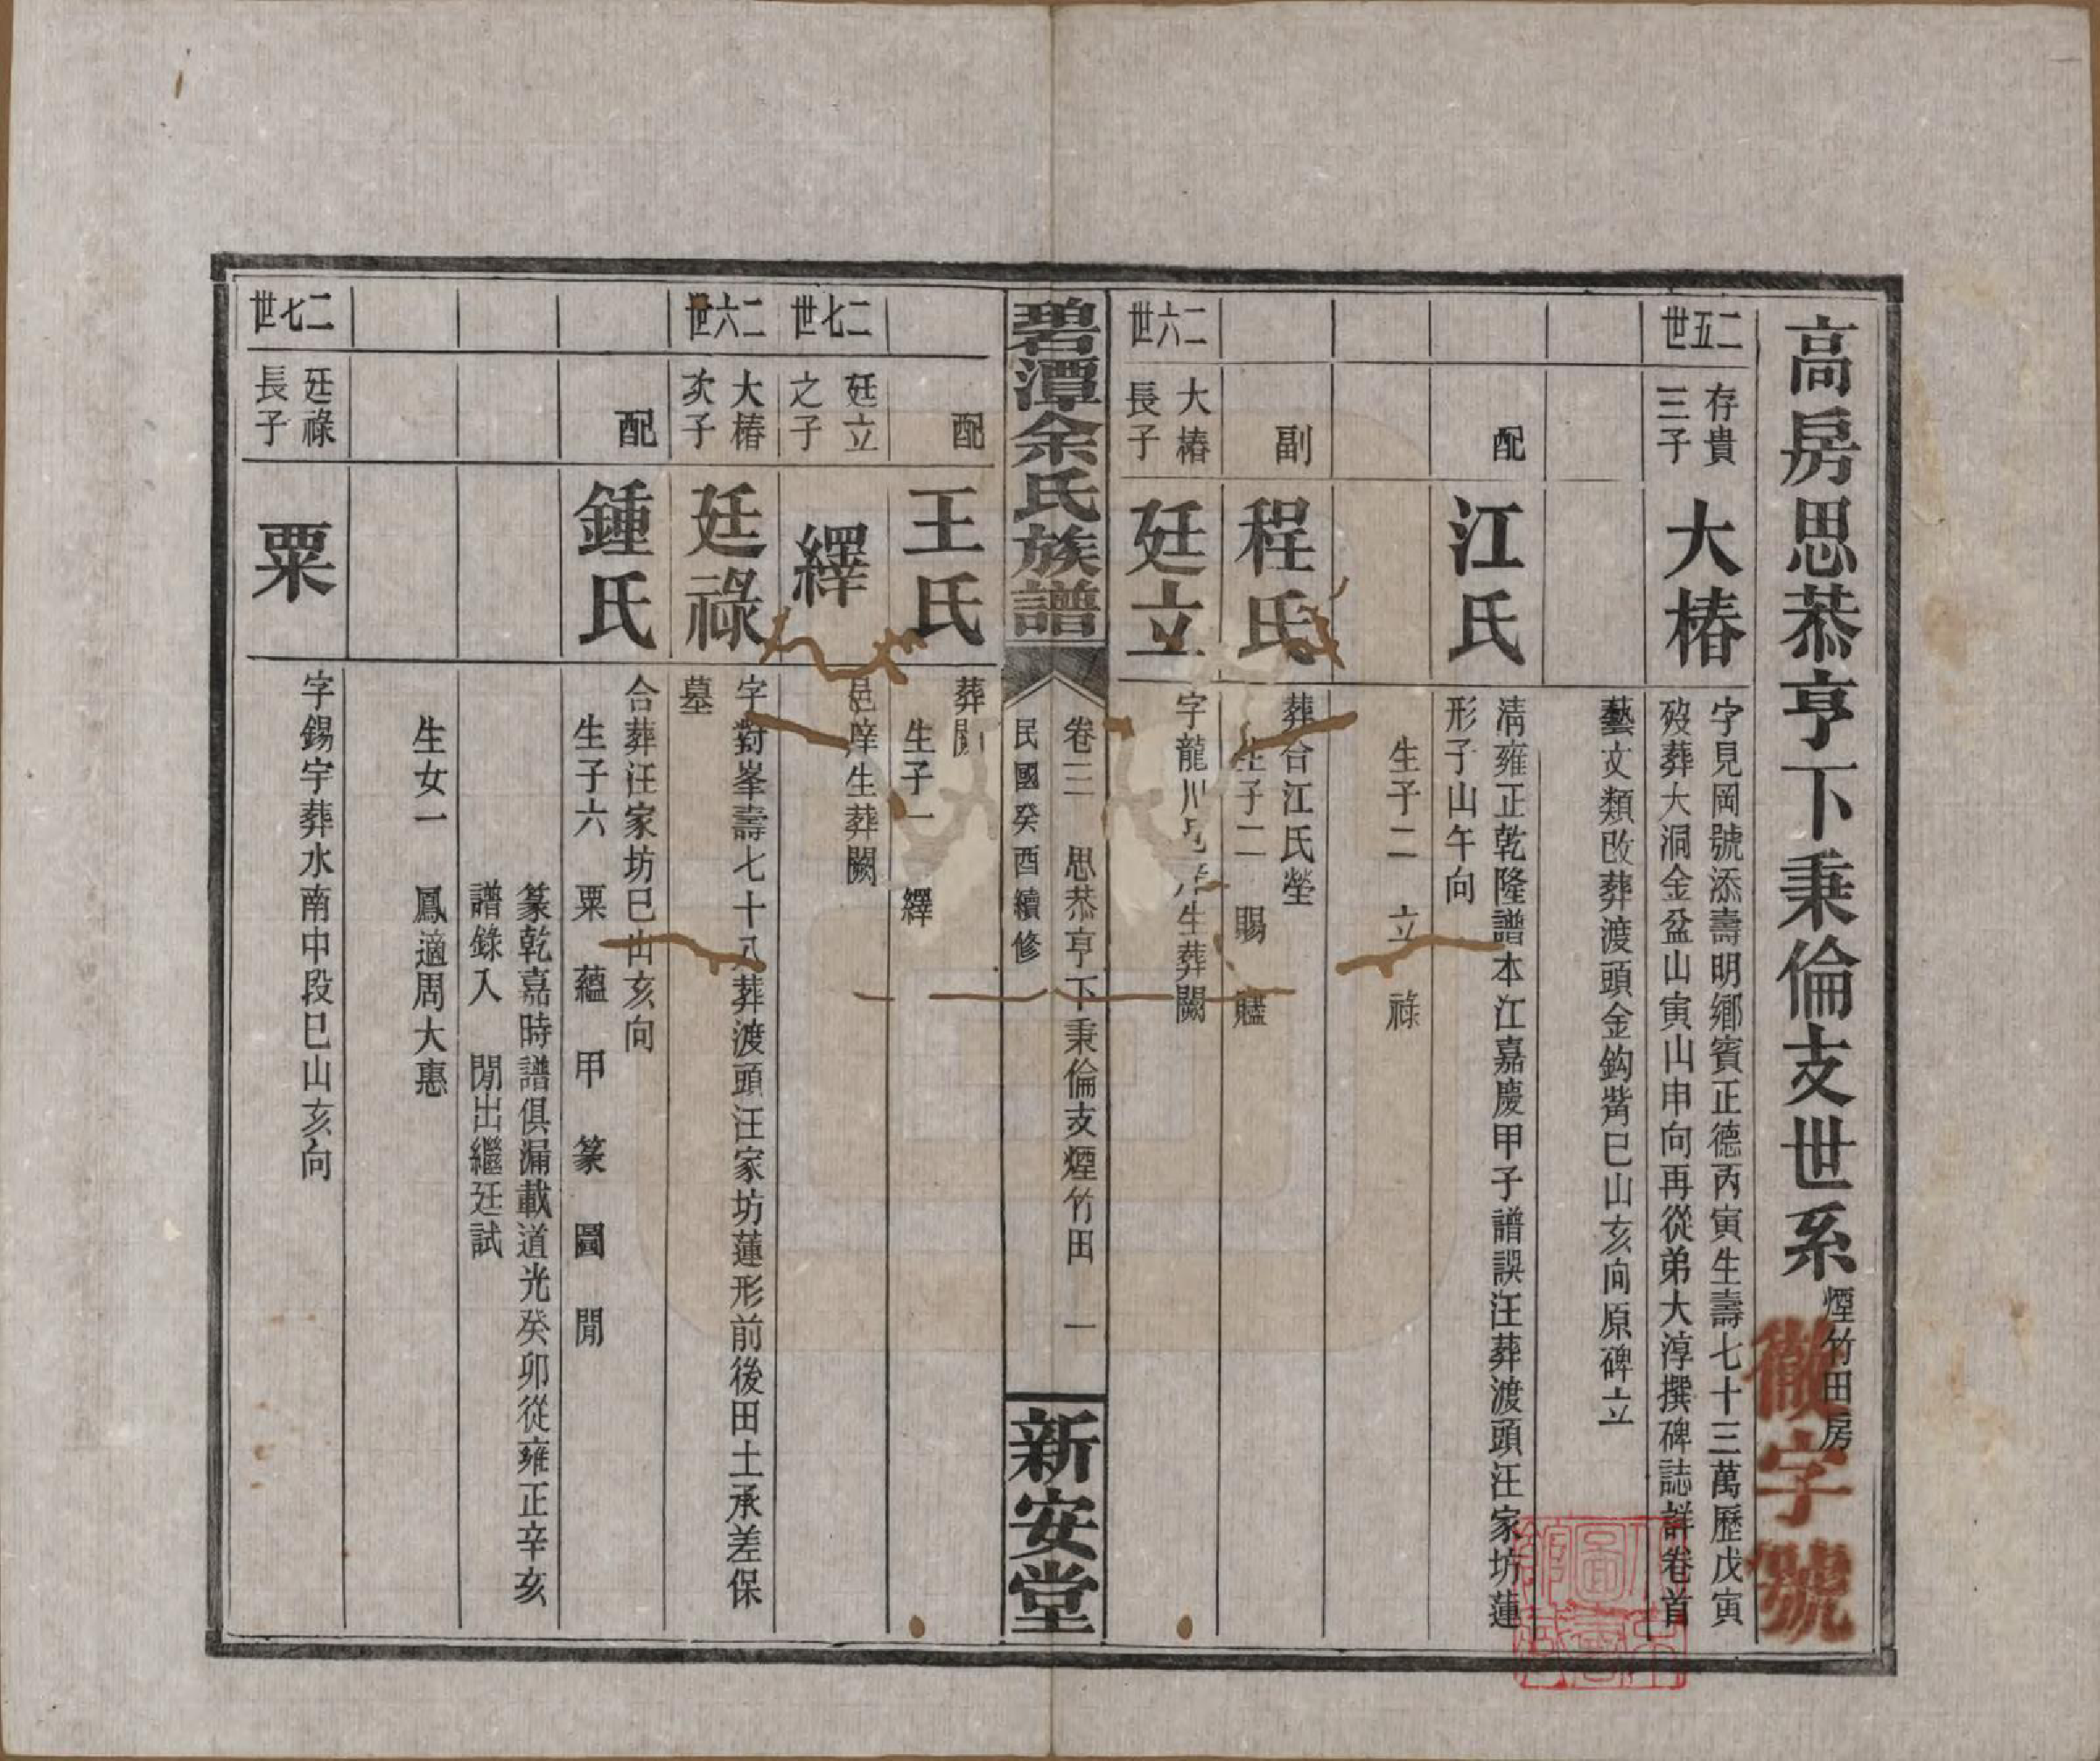 高房思恭亨下秉倫支世系 煙竹田房
徽字號
二五世
存貴三子
大椿
字見岡號添壽明鄉賓正德丙寅生壽七十三萬歷戊寅
歿葬大洞金盆山寅山申向再從弟大淳撰碑誌詳卷首
藝文類改葬渡頭金鈎觜巳山亥向原碑立
配
江氏
清雍正乾隆譜本江嘉慶甲子譜誤汪葬渡頭汪家坊蓮
形子山午向
生子二 立 祿
副
程氏
葬合江氏塋
生子二 賜
二六世
大椿長子
廷立
字龍川 生葬闕
碧潭余氏族譜
卷三 思恭亨下秉倫支煙竹田 一
民國癸酉續修
新安堂
配
王氏
葬闕
生子一 繹
二七世
廷立之子
繹
邑庠生葬闕
二六世
大椿次子
廷祿
字對峯壽七十八葬渡頭汪家坊蓮形前後田土承差保
墓
配
鍾氏
合葬汪家坊巳山亥向
生子六 粟 蘊 甲 篆 圖 閒
篆乾嘉時譜俱漏載道光癸卯從雍正辛亥
譜錄入 閒出繼廷試
生女一 鳳適周大惠
二七世
廷祿長子
粟
字錫宇葬水南中段巳山亥向